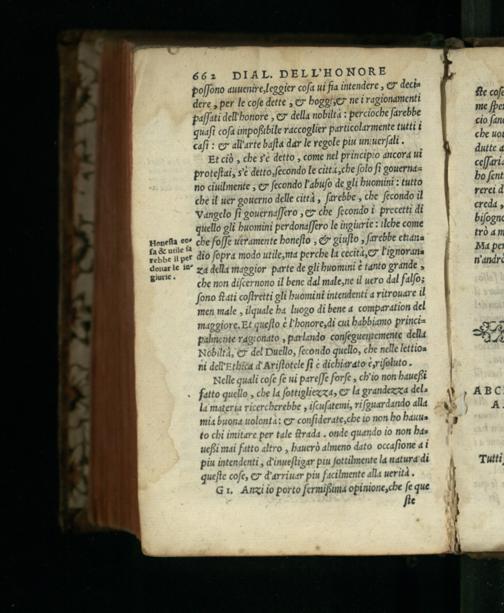 662 DIAL. DELL'HONORE
possono auuenire, leggier cosa ui fia intendere, & deci-
dere, per le cose dette, & hoggi, & ne i ragionamenti
passati dell'honore, & della nobiltà: percioche sarebbe
quasi cosa impoßibile raccoglier particolarmente tutti i
casi: & all'arte basta dar le regole piu uniuersali.
Et ciò, che s'è detto, come nel principio ancora ui
protestai, s'è detto, secondo le città, che solo si gouerna-
no ciuilmente, & secondo l'abuso de gli huomini: tutto
che il uer gouerno delle città, sarebbe, che secondo il
Vangelo si gouernassero, & che secondo i precetti di
quello gli huomini perdonassero le ingiurie: ilche come
che fosse ueramente honesto, & giusto, sarebbe etian-
dio sopra modo utile, ma perche la cecità, & l'ignoran-
za della maggior parte de gli huomini è tanto grande,
che non discernono il bene dal male, ne il uero dal falso;
sono stati costretti gli huomini intendenti a ritrouare il
men male, ilquale ha luogo di bene a comparation del
maggiore. Et questo è l'honore, di cui habbiamo princi-
palmente ragionato, parlando conseguentemente della
Nobiltà, & del Duello, secondo quello, che nelle lettio-
ni dell'Ethica d'Aristotele si è dichiarato è, risoluto.
Nelle quali cose se ui paresse forse, ch'io non haueßi
fatto quello, che la sottigliezza, & la grandezza del-
la materia ricercherebbe, iscusatemi, risguardando alla
mia buona uolontà: & si considerate, che io non ho hauu-
to chi imitare per tale strada. onde quando io non ha-
ueßi mai fatto altro, hauerò almeno dato occasione a i
piu intendenti, d'inuestigar piu sottilmente la natura di
queste cose, & d'arriuar piu facilmente alla uerità.
G I. Anzi io porto fermißima opinione, che se que
ste
Honesta co-
sa & utile sa
rebbe il per
donar le in-
giurie.
ste cose
me
cio
che
dutte a
cessaria
ho sent
rerei d
creda,
bisogno
trò a m
Ma per
n'andrò
ABC
Tutti